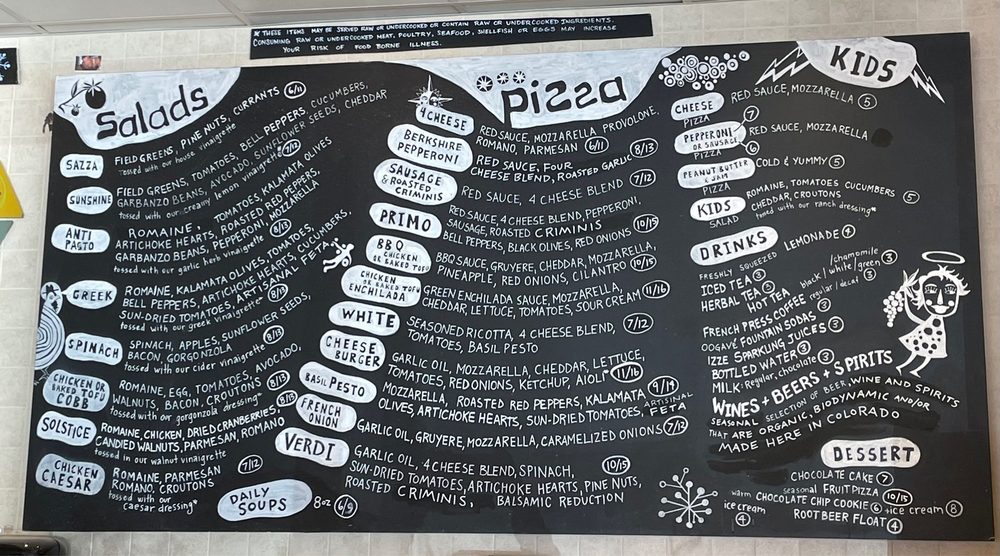 * THESE ITEMS MAY BE SERVED RAW OR UNDERCOOKED OR CONTAIN RAW OR UNDERCOOKED INGREDIENTS.
CONSUMING RAW OR UNDERCOOKED MEAT, POULTRY, SEAFOOD, SHELLFISH OR EGGS MAY INCREASE
YOUR RISK OF FOOD BORNE ILLNESS.
Salads
SAZZA
FIELD GREENS, PINE NUTS, CURRANTS 6/11
tossed with our house vinaigrette
SUNSHINE
FIELD GREENS, TOMATOES, BELL PEPPERS, CUCUMBERS,
GARBANZO BEANS, AVOCADO, SUNFLOWER SEEDS, CHEDDAR
tossed with our creamy lemon vinaigrette 7/12
ANTI
PASTO
ROMAINE, TOMATOES, KALAMATA OLIVES
ARTICHOKE HEARTS, ROASTED RED PEPPERS,
GARBANZO BEANS, PEPPERONI, MOZZARELLA
tossed with our garlic herb vinaigrette 8/13
GREEK
ROMAINE, KALAMATA OLIVES, TOMATOES,
BELL PEPPERS, ARTICHOKE HEARTS, CUCUMBERS,
SUN-DRIED TOMATOES, ARTISANAL FETA
tossed with our greek vinaigrette 8/13
SPINACH
SPINACH, APPLES, SUNFLOWER SEEDS,
BACON, GORGONZOLA
tossed with our cider vinaigrette 8/13
CHICKEN OR
BAKED TOFU
COBB
ROMAINE, EGG, TOMATOES, AVOCADO,
WALNUTS, BACON, CROUTONS 8/13
tossed with our gorgonzola dressing*
SOLSTICE
ROMAINE, CHICKEN, DRIED CRANBERRIES, 8/13
CANDIED WALNUTS, PARMESAN, ROMANO
tossed in our walnut vinaigrette
CHICKEN
CAESAR
ROMAINE, PARMESAN 7/12
ROMANO, CROUTONS
tossed with our
caesar dressing*
DAILY
SOUPS
8oz 6/9
pizza
4 CHEESE
RED SAUCE, MOZZARELLA PROVOLONE,
ROMANO, PARMESAN 6/11
BERKSHIRE
PEPPERONI
RED SAUCE, FOUR
CHEESE BLEND, ROASTED GARLIC 8/13
SAUSAGE
& ROASTED
CRIMINIS
RED SAUCE, 4 CHEESE BLEND 7/12
PRIMO
RED SAUCE, 4 CHEESE BLEND, PEPPERONI,
SAUSAGE, ROASTED CRIMINIS
BELL PEPPERS, BLACK OLIVES, RED ONIONS 10/15
BBQ
CHICKEN
OR BAKED TOFU
BBQ SAUCE, GRUYERE, CHEDDAR, MOZZARELLA,
PINEAPPLE, RED ONIONS, CILANTRO 10/15
CHICKEN
OR BAKED TOFU
ENCHILADA
GREEN ENCHILADA SAUCE, MOZZARELLA,
CHEDDAR, LETTUCE, TOMATOES, SOUR CREAM 11/16
WHITE
SEASONED RICOTTA, 4 CHEESE BLEND, 7/12
TOMATOES, BASIL PESTO
CHEESE
BURGER
GARLIC OIL, MOZZARELLA, CHEDDAR, LETTUCE,
TOMATOES, RED ONIONS, KETCHUP, AIOLI* 11/16
BASIL PESTO
MOZZARELLA, ROASTED RED PEPPERS, KALAMATA 9/14
OLIVES, ARTICHOKE HEARTS, SUN-DRIED TOMATOES, ARTISINAL FETA
FRENCH
ONION
GARLIC OIL, GRUYERE, MOZZARELLA, CARAMELIZED ONIONS 7/12
VERDI
GARLIC OIL, 4 CHEESE BLEND, SPINACH, 10/15
SUN-DRIED TOMATOES, ARTICHOKE HEARTS, PINE NUTS,
ROASTED CRIMINIS, BALSAMIC REDUCTION
KIDS
CHEESE
PIZZA
RED SAUCE, MOZZARELLA 5
PEPPERONI 7
OR SAUSAGE
PIZZA 6
RED SAUCE, MOZZARELLA
PEANUT BUTTER
& JAM
PIZZA
COLD & YUMMY 5
KIDS
SALAD
ROMAINE, TOMATOES CUCUMBERS 5
CHEDDAR, CROUTONS
tossed with our ranch dressing*
DRINKS
FRESHLY SQUEEZED LEMONADE 4
ICED TEA 3
HERBAL TEA 3
HOT TEA black/white/green/chamomile 3
FRENCH PRESS COFFEE regular/decaf 3
OOGAVÉ FOUNTAIN SODAS 3
IZZE SPARKLING JUICES 3
BOTTLED WATER 3
MILK: Regular, chocolate 3
WINES + BEERS + SPIRITS
SEASONAL SELECTION OF BEER, WINE AND SPIRITS
THAT ARE ORGANIC, BIODYNAMIC AND/OR
MADE HERE IN COLORADO
DESSERT
CHOCOLATE CAKE 7
seasonal FRUIT PIZZA 10/15
warm CHOCOLATE CHIP COOKIE 6 + ice cream 8
ice cream 4
ROOT BEER FLOAT 4